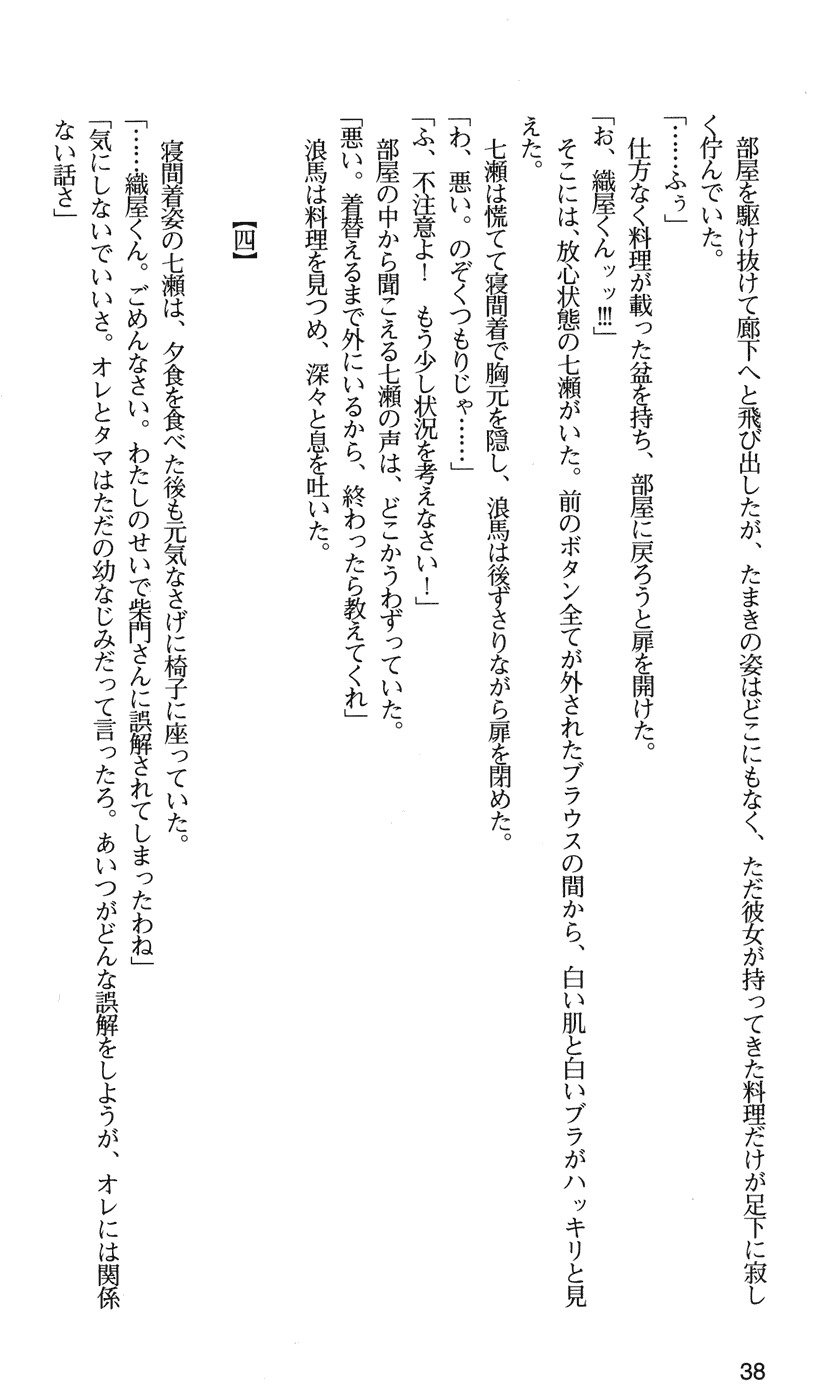 部屋を駆け抜けて廊下へと飛び出したが、たまきの姿はどこにもなく、ただ彼女が持ってきた料理だけが足下に寂し
く佇んでいた。
「……ふぅ」
　仕方なく料理が載った盆を持ち、部屋に戻ろうと扉を開けた。
「お、織屋くんッッ!!!」
　そこには、放心状態の七瀬がいた。前のボタン全てが外されたブラウスの間から、白い肌と白いブラがハッキリと見
えた。
　七瀬は慌てて寝間着で胸元を隠し、浪馬は後ずさりながら扉を閉めた。
「わ、悪い。のぞくつもりじゃ……」
「ふ、不注意よ！　もう少し状況を考えなさい！」
　部屋の中から聞こえる七瀬の声は、どこかうわずっていた。
「悪い。着替えるまで外にいるから、終わったら教えてくれ」
　浪馬は料理を見つめ、深々と息を吐いた。
【四】
　寝間着姿の七瀬は、夕食を食べた後も元気なさげに椅子に座っていた。
「……織屋くん。ごめんなさい。わたしのせいで柴門さんに誤解されてしまったわね」
「気にしないでいいさ。オレとタマはただの幼なじみだって言ったろ。あいつがどんな誤解をしようが、オレには関係
ない話さ」
38